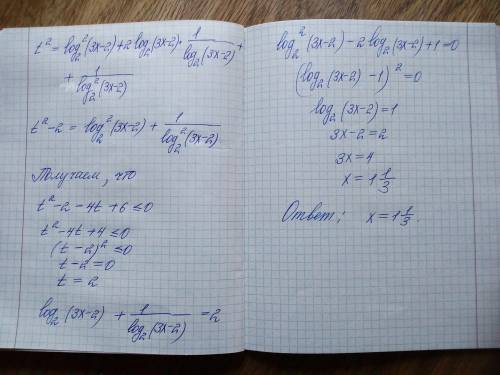 t² = log₂²(3x-2)+2 log₂(3x-2)· 1/log₂(3x-2) +
+ 1/log₂²(3x-2)
t²-2 = log₂²(3x-2) + 1/log₂²(3x-2)
Получаем, что
t²-2-4t+6≤0
t²-4t+4≤0
(t-2)²≤0
t-2=0
t=2
log₂(3x-2) + 1/log₂(3x-2) =2
log₂²(3x-2)-2 log₂(3x-2)+1=0
(log₂(3x-2)-1)²=0
log₂(3x-2)=1
3x-2=2
3x=4
x=1 1/3
Ответ: x=1 1/3.